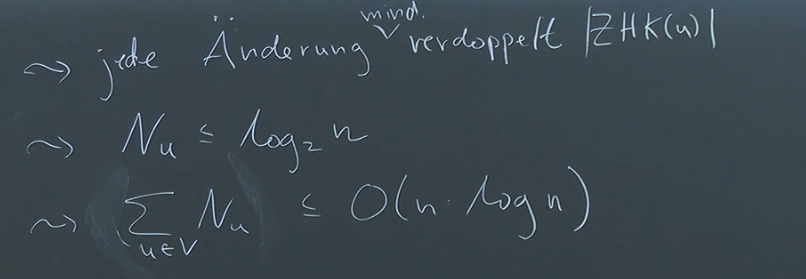 ⇝ jede Änderung mind. verdoppelt |ZHK(u)|
⇝ Nu ≤ log₂ n
⇝ (∑u∈V Nu) ≤ O(n · log n)